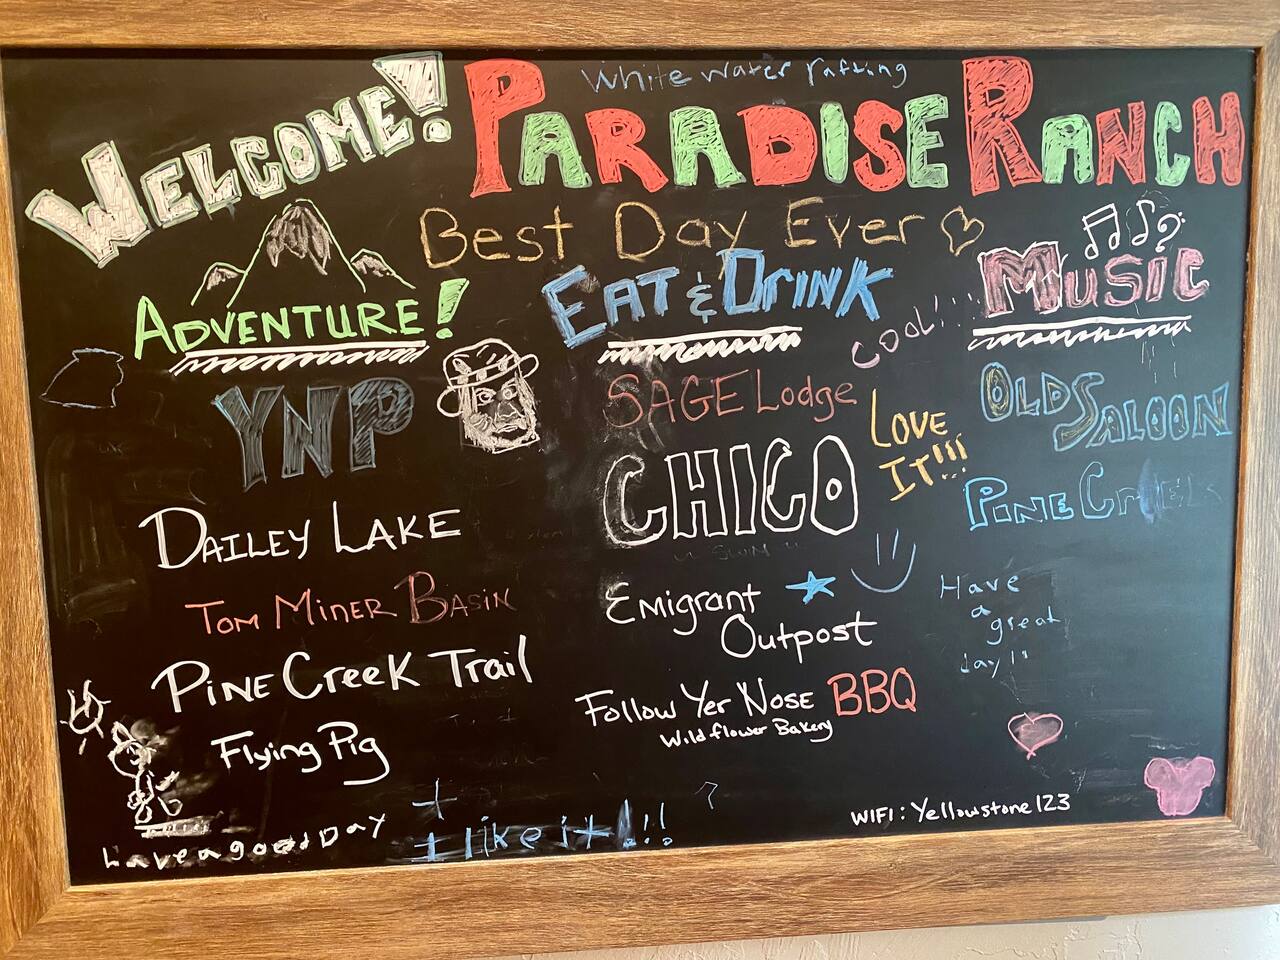 White water rafting
WELCOME! PARADISE RANCH
Best Day Ever
ADVENTURE!
YNP
DAILEY LAKE
TOM MINER BASIN
PINE CREEK Trail
Flying Pig
have a good Day
EAT & DRINK
COOL!!!
SAGE Lodge
LOVE
IT!!!
CHICO
Emigrant
Outpost
Follow Yer Nose BBQ
Wildflower Bakery
I like it!!!
MUSIC
OLD SALOON
PINE CREEK
Have
a
great
day!!
WIFI: Yellowstone123